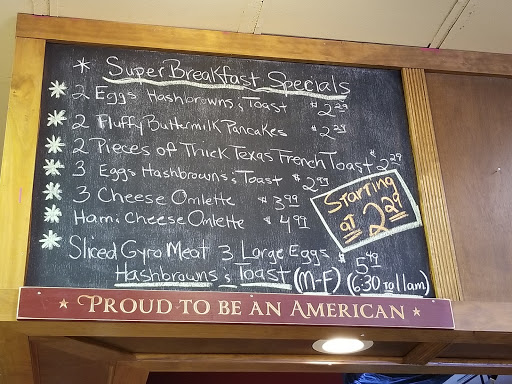 * Super Breakfast Specials
* 2 Eggs Hashbrowns & Toast $2.29
* 2 Fluffy Buttermilk Pancakes $2.29
* 2 Pieces of Thick Texas French Toast $2.29
* 3 Eggs Hashbrowns & Toast $2.99
* 3 Cheese Omlette $3.99
* Ham & Cheese Omlette $4.99
* Sliced Gyro Meat 3 Large Eggs $5.49
Hashbrowns & Toast (M-F) (6:30 to 11am)
Starting
at 2.29
★ PROUD TO BE AN AMERICAN ★